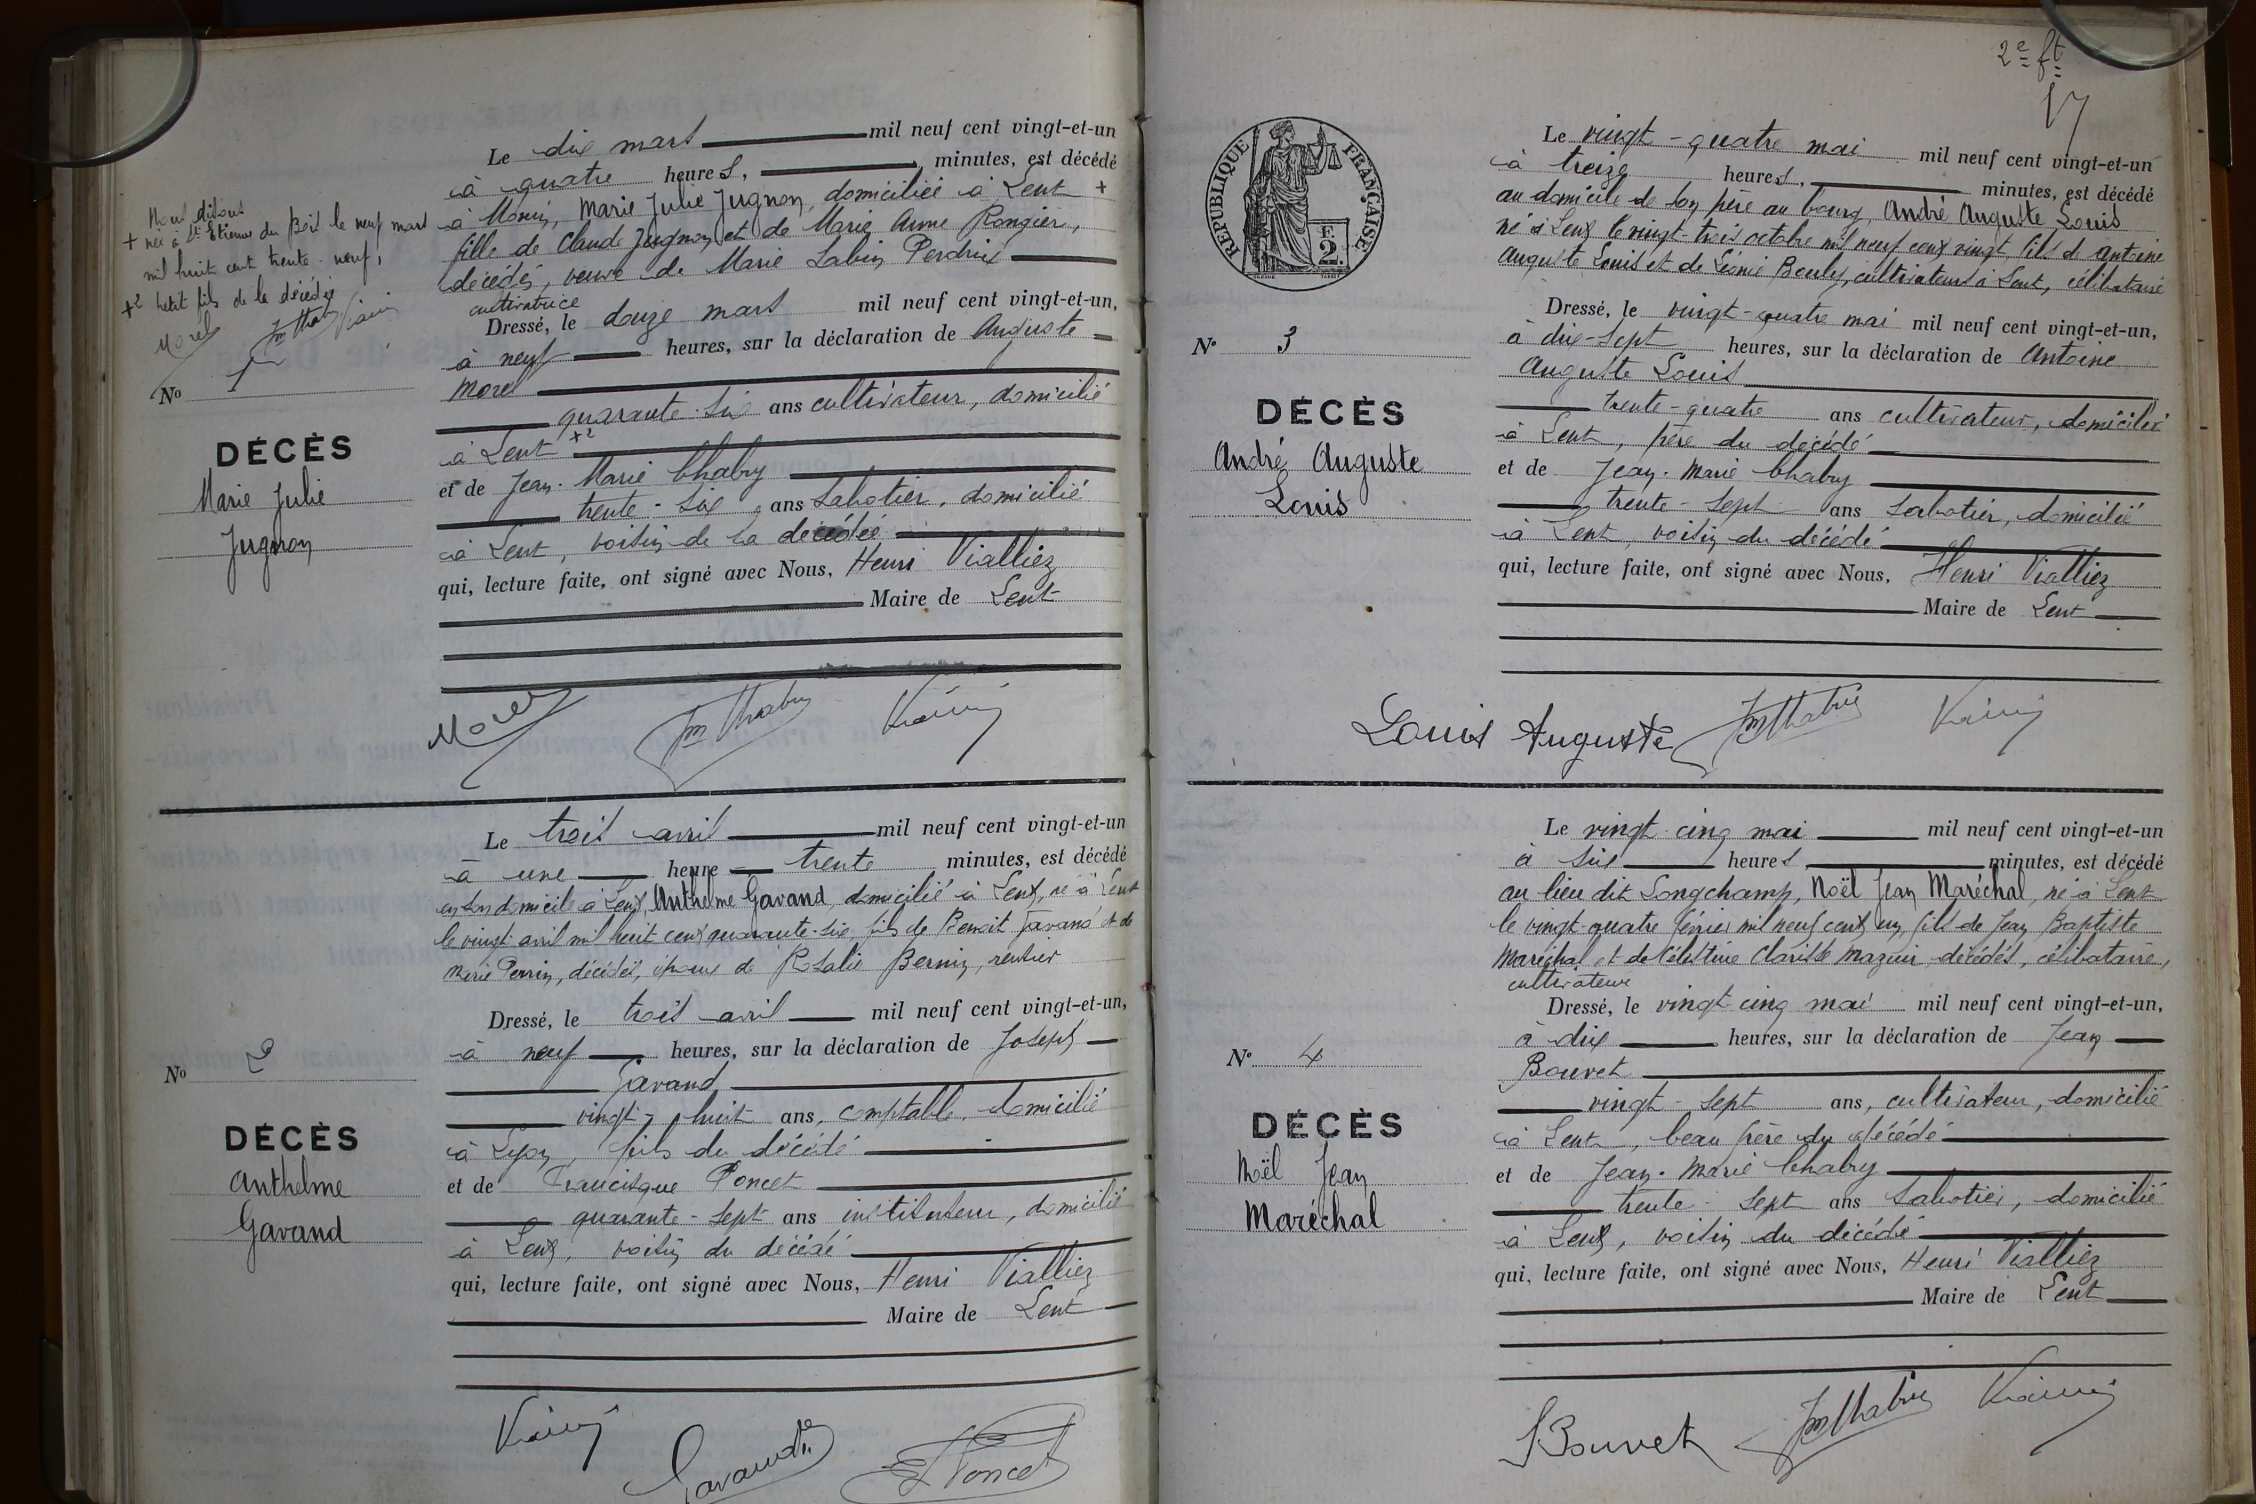 Nous disons
+ née à St Etienne du Bois le neuf mars
mil huit cent trente-neuf,
+2 petit fils de la décédée
Morel
Nº 1
DÉCÈS
Marie Julie
Jugnon
Le dix mars mil neuf cent vingt-et-un
à quatre heures, minutes, est décédé
à Monin, Marie Julie Jugnon, domiciliée à Lent +
fille de Claude Jugnon et de Marie Anne Rongier,
décédés, veuve de Marie Labin Perdrix
cultivatrice
Dressé, le douze mars mil neuf cent vingt-et-un,
à neuf heures, sur la déclaration de Auguste
Morel
quarante-six ans cultivateur, domicilié
à Lent +2
et de Jean-Marie Chabry
trente-six ans Sabotier, domicilié
à Lent, voisin de la décédée
qui, lecture faite, ont signé avec Nous, Henri Vialliez
Maire de Lent
Morel Jm Chabry
Nº 2
DÉCÈS
Anthelme
Gavand
Le trois avril mil neuf cent vingt-et-un
à une heure trente minutes, est décédé
en son domicile à Lent, Anthelme Gavand, domicilié à Lent, né à Lent
le vingt avril mil huit cent quarante-six, fils de Benoit Gavand et de
Marie Perrin, décédés, époux de Rosalie Bernin, rentier
Dressé, le trois avril mil neuf cent vingt-et-un,
à neuf heures, sur la déclaration de Joseph
Gavand
vingt-huit ans, comptable, domicilié
à Lyon, fils du décédé
et de Francisque Poncet
quarante-sept ans instituteur, domicilié
à Lent, voisin du décédé
qui, lecture faite, ont signé avec Nous, Henri Vialliez
Maire de Lent
Gavand Poncet
2e ft
17
RÉPUBLIQUE FRANÇAISE
2
Nº 3
DÉCÈS
André Auguste
Louis
Le vingt-quatre mai mil neuf cent vingt-et-un
à treize heures, minutes, est décédé
au domicile de son père au bourg, André Auguste Louis
né à Lent le vingt-trois octobre mil neuf cent vingt, fils de Antoine
Auguste Louis et de Léonie Bouley, cultivateurs à Lent, célibataire
Dressé, le vingt-quatre mai mil neuf cent vingt-et-un,
à dix-sept heures, sur la déclaration de Antoine
Auguste Louis
trente-quatre ans cultivateur, domicilié
à Lent, père du décédé
et de Jean-Marie Chabry
trente-sept ans sabotier, domicilié
à Lent, voisin du décédé
qui, lecture faite, ont signé avec Nous, Henri Vialliez
Maire de Lent
Louis Auguste Jm Chabry
Nº 4
DÉCÈS
Noël Jean
Maréchal
Le vingt-cinq mai mil neuf cent vingt-et-un
à six heures minutes, est décédé
au lieu dit Longchamp, Noël Jean Maréchal, né à Lent
le vingt-quatre février mil neuf cent un, fils de Jean Baptiste
Maréchal et de Célestine Clarisse Mazuir, décédés, célibataire,
cultivateur
Dressé, le vingt-cinq mai mil neuf cent vingt-et-un,
à dix heures, sur la déclaration de Jean
Bouvet
vingt-sept ans, cultivateur, domicilié
à Lent, beau frère du décédé
et de Jean-Marie Chabry
trente-sept ans Sabotier, domicilié
à Lent, voisin du décédé
qui, lecture faite, ont signé avec Nous, Henri Vialliez
Maire de Lent
J Bouvet Jm Chabry